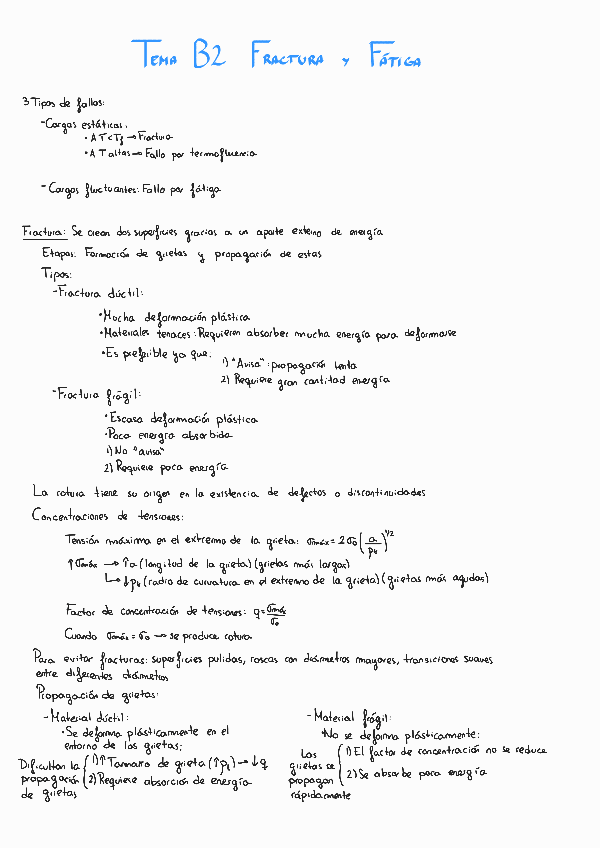 TEMA B2 FRACTURA Y FÁTIGA
3 Tipos de fallos:
- Cargas estáticas:
• A T<Tf → Fractura
• A T altas → Fallo por termofluencia
- Cargas fluctuantes: Fallo por fátiga
Fractura: Se crean dos superficies gracias a un aporte externo de energía
Etapas: Formación de grietas y propagación de estas
Tipos:
- Fractura dúctil:
• Mucha deformación plástica
• Materiales tenaces: Requieren absorber mucha energía para deformarse
• Es preferible ya que:
1) "Avisa": propagación lenta
2) Requiere gran cantidad energía
- Fractura frágil:
• Escasa deformación plástica
• Poca energía absorbida
1) No "avisa"
2) Requiere poca energía
La rotura tiene su origen en la existencia de defectos o discontinuidades
Concentraciones de tensiones:
Tensión máxima en el extremo de la grieta: σmáx = 2σ0 (a/ρt)^1/2
↑σmáx → ↑a (longitud de la grieta) (grietas más largas)
↳ ↓ρt (radio de curvatura en el extremo de la grieta) (grietas más agudas)
Factor de concentración de tensiones: q = σmáx/σ0
Cuando σmáx = σ0 → se produce rotura
Para evitar fracturas: superficies pulidas, roscas con diámetros mayores, transiciones suaves
entre diferentes diámetros
Propagación de grietas:
- Material dúctil:
• Se deforma plásticamente en el
entorno de las grietas;
Dificultan la propagación de grietas
1) ↑ Tamaño de grieta (↑ρt) → ↓q
2) Requiere absorción de energía
- Material frágil:
No se deforma plásticamente:
Las grietas se propagan rápidamente
1) El factor de concentración no se reduce
2) Se absorbe poca energía